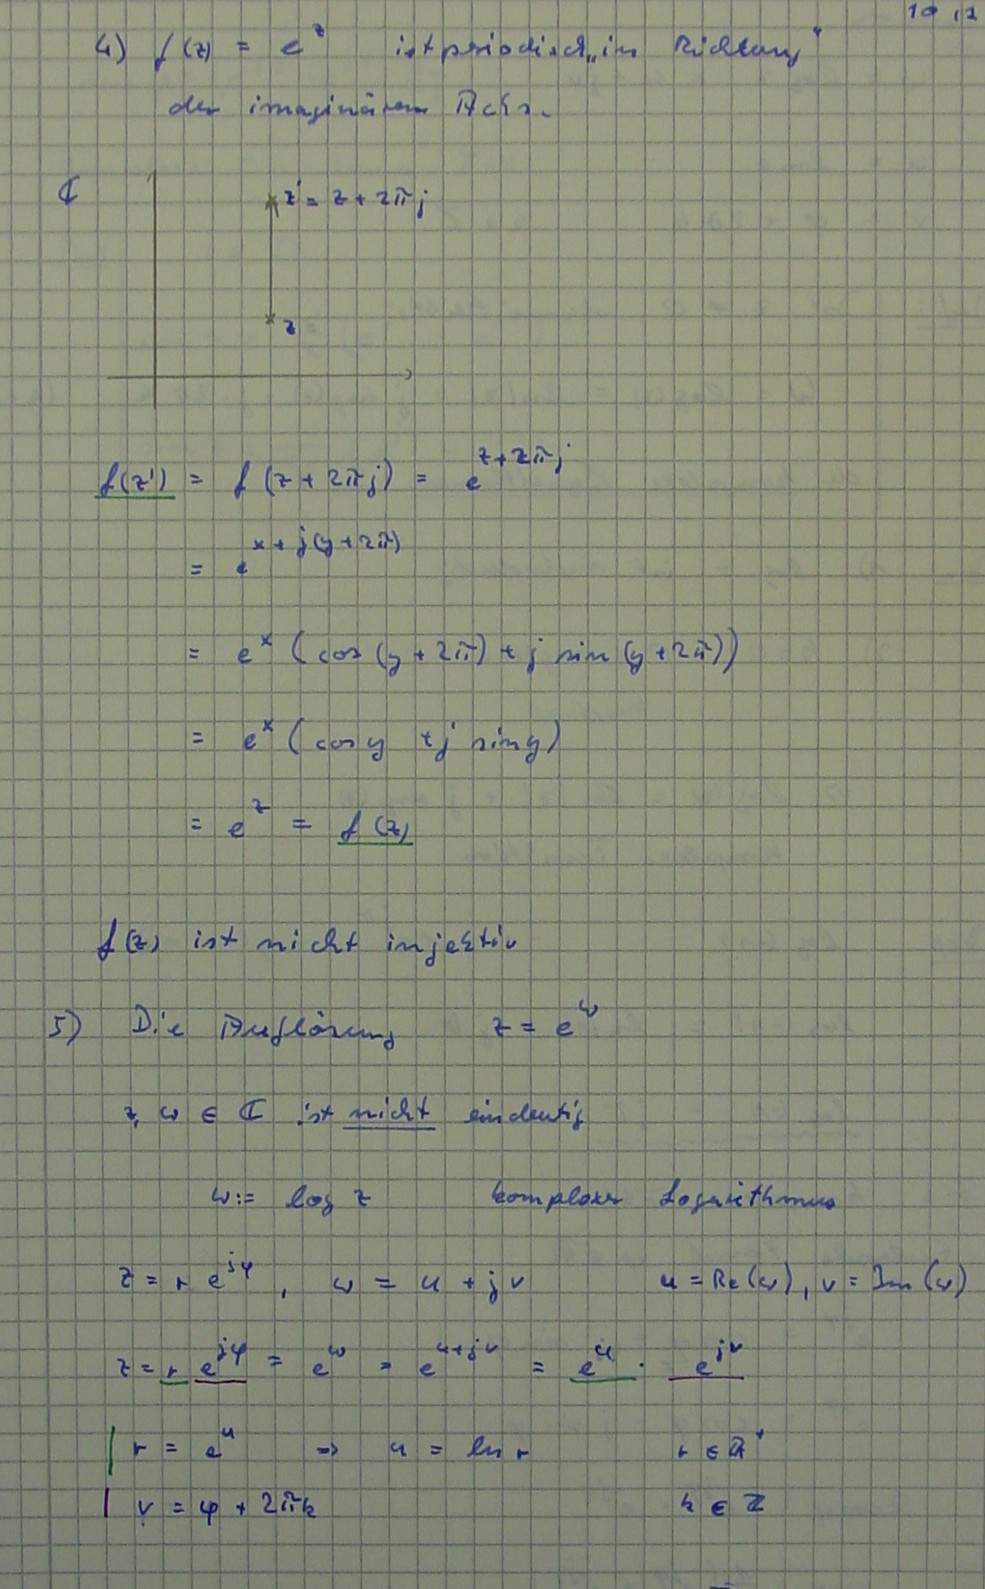 10.12
4) f(z) = e^z ist periodisch „in Richtung“
der imaginären Achse.
ℂ
z' = z + 2πj
z
f(z') = f(z + 2πj) = e^(z+2πj)
= e^(x + j(y+2π))
= e^x (cos(y+2π) + j sin(y+2π))
= e^x (cos y + j sin y)
= e^z = f(z)
f(z) ist nicht injektiv
5) Die Auflösung z = e^w
z, w ∈ ℂ ist nicht eindeutig
w := log z komplexer Logarithmus
z = r e^(jφ), w = u + jv u = Re(w), v = Im(w)
z = r e^(jφ) = e^w = e^(u+jv) = e^u · e^(jv)
r = e^u ⇒ u = ln r r ∈ ℝ^+
v = φ + 2πk k ∈ ℤ